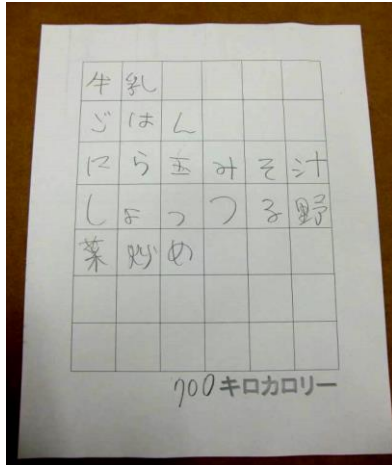 牛乳
ごはん
にら玉みそ汁
しょっつる野
菜炒め
700キロカロリー